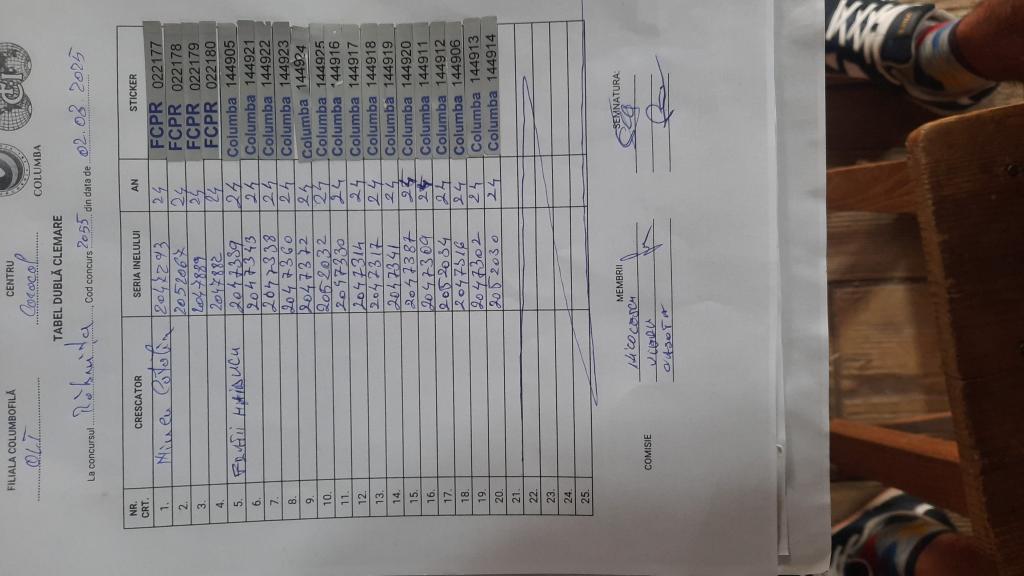 FILIALA COLUMBOFILĂ CENTRU COLUMBA
OLT Caracal
TABEL DUBLĂ CLEMARE
La concursul Râmnița, Cod concurs 2055 din data de 02.03 2025
NR. CRT. CRESCATOR SERIA INELULUI AN STICKER
1. 2042293 24 FCPR 022177
2. 2052067 24 FCPR 022178
3. 2047889 24 FCPR 022179
4. 2017882 24 FCPR 022180
5. FRATII 2047359 24 Columba 144905
6. 2047343 24 Columba 144921
7. 2047338 24 Columba 144922
8. 2047360 24 Columba 144923
9. 2047322 24 Columba 144924
10. 2052032 24 Columba 144925
11. 2047330 24 Columba 144916
12. 2047314 24 Columba 144917
13. 2047317 24 Columba 144918
14. 2047341 24 Columba 144919
15. 2047387 24 Columba 144920
16. 2047369 24 Columba 144911
17. 2052034 24 Columba 144912
18. 2047316 24 Columba 144906
19. 2047302 24 Columba 144913
20. 2052030 24 Columba 144914
21.
22.
23.
24.
25.
COMISIE MEMBRII SEMNATURA: